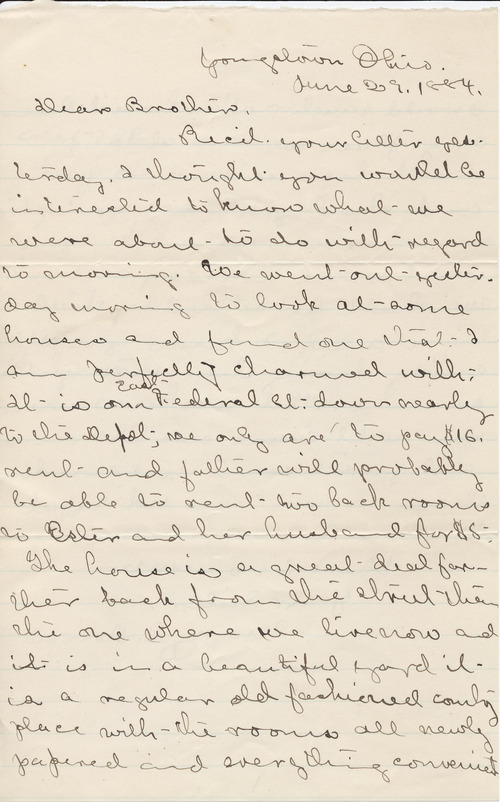 Youngstown Ohio.
June 29. 1884.
Dear Brother.
Recd. your letter yes-
terday. I thought you would be
interested to know what we
were about to do with regard
to moving. We went out yester-
day morning to look at some
houses and found one that I
am perfectly charmed with;
It is on East Federal St: down nearly
to the Depot; we only are to pay $16.
rent and father will probably
be able to rent two back rooms
to Ester and her husband for $5.
The house is a great deal far-
ther back from the street than
the one where we live now and
it is in a beautiful yard it
is a regular old fashioned country
place with the rooms all newly
papered and everything convenient